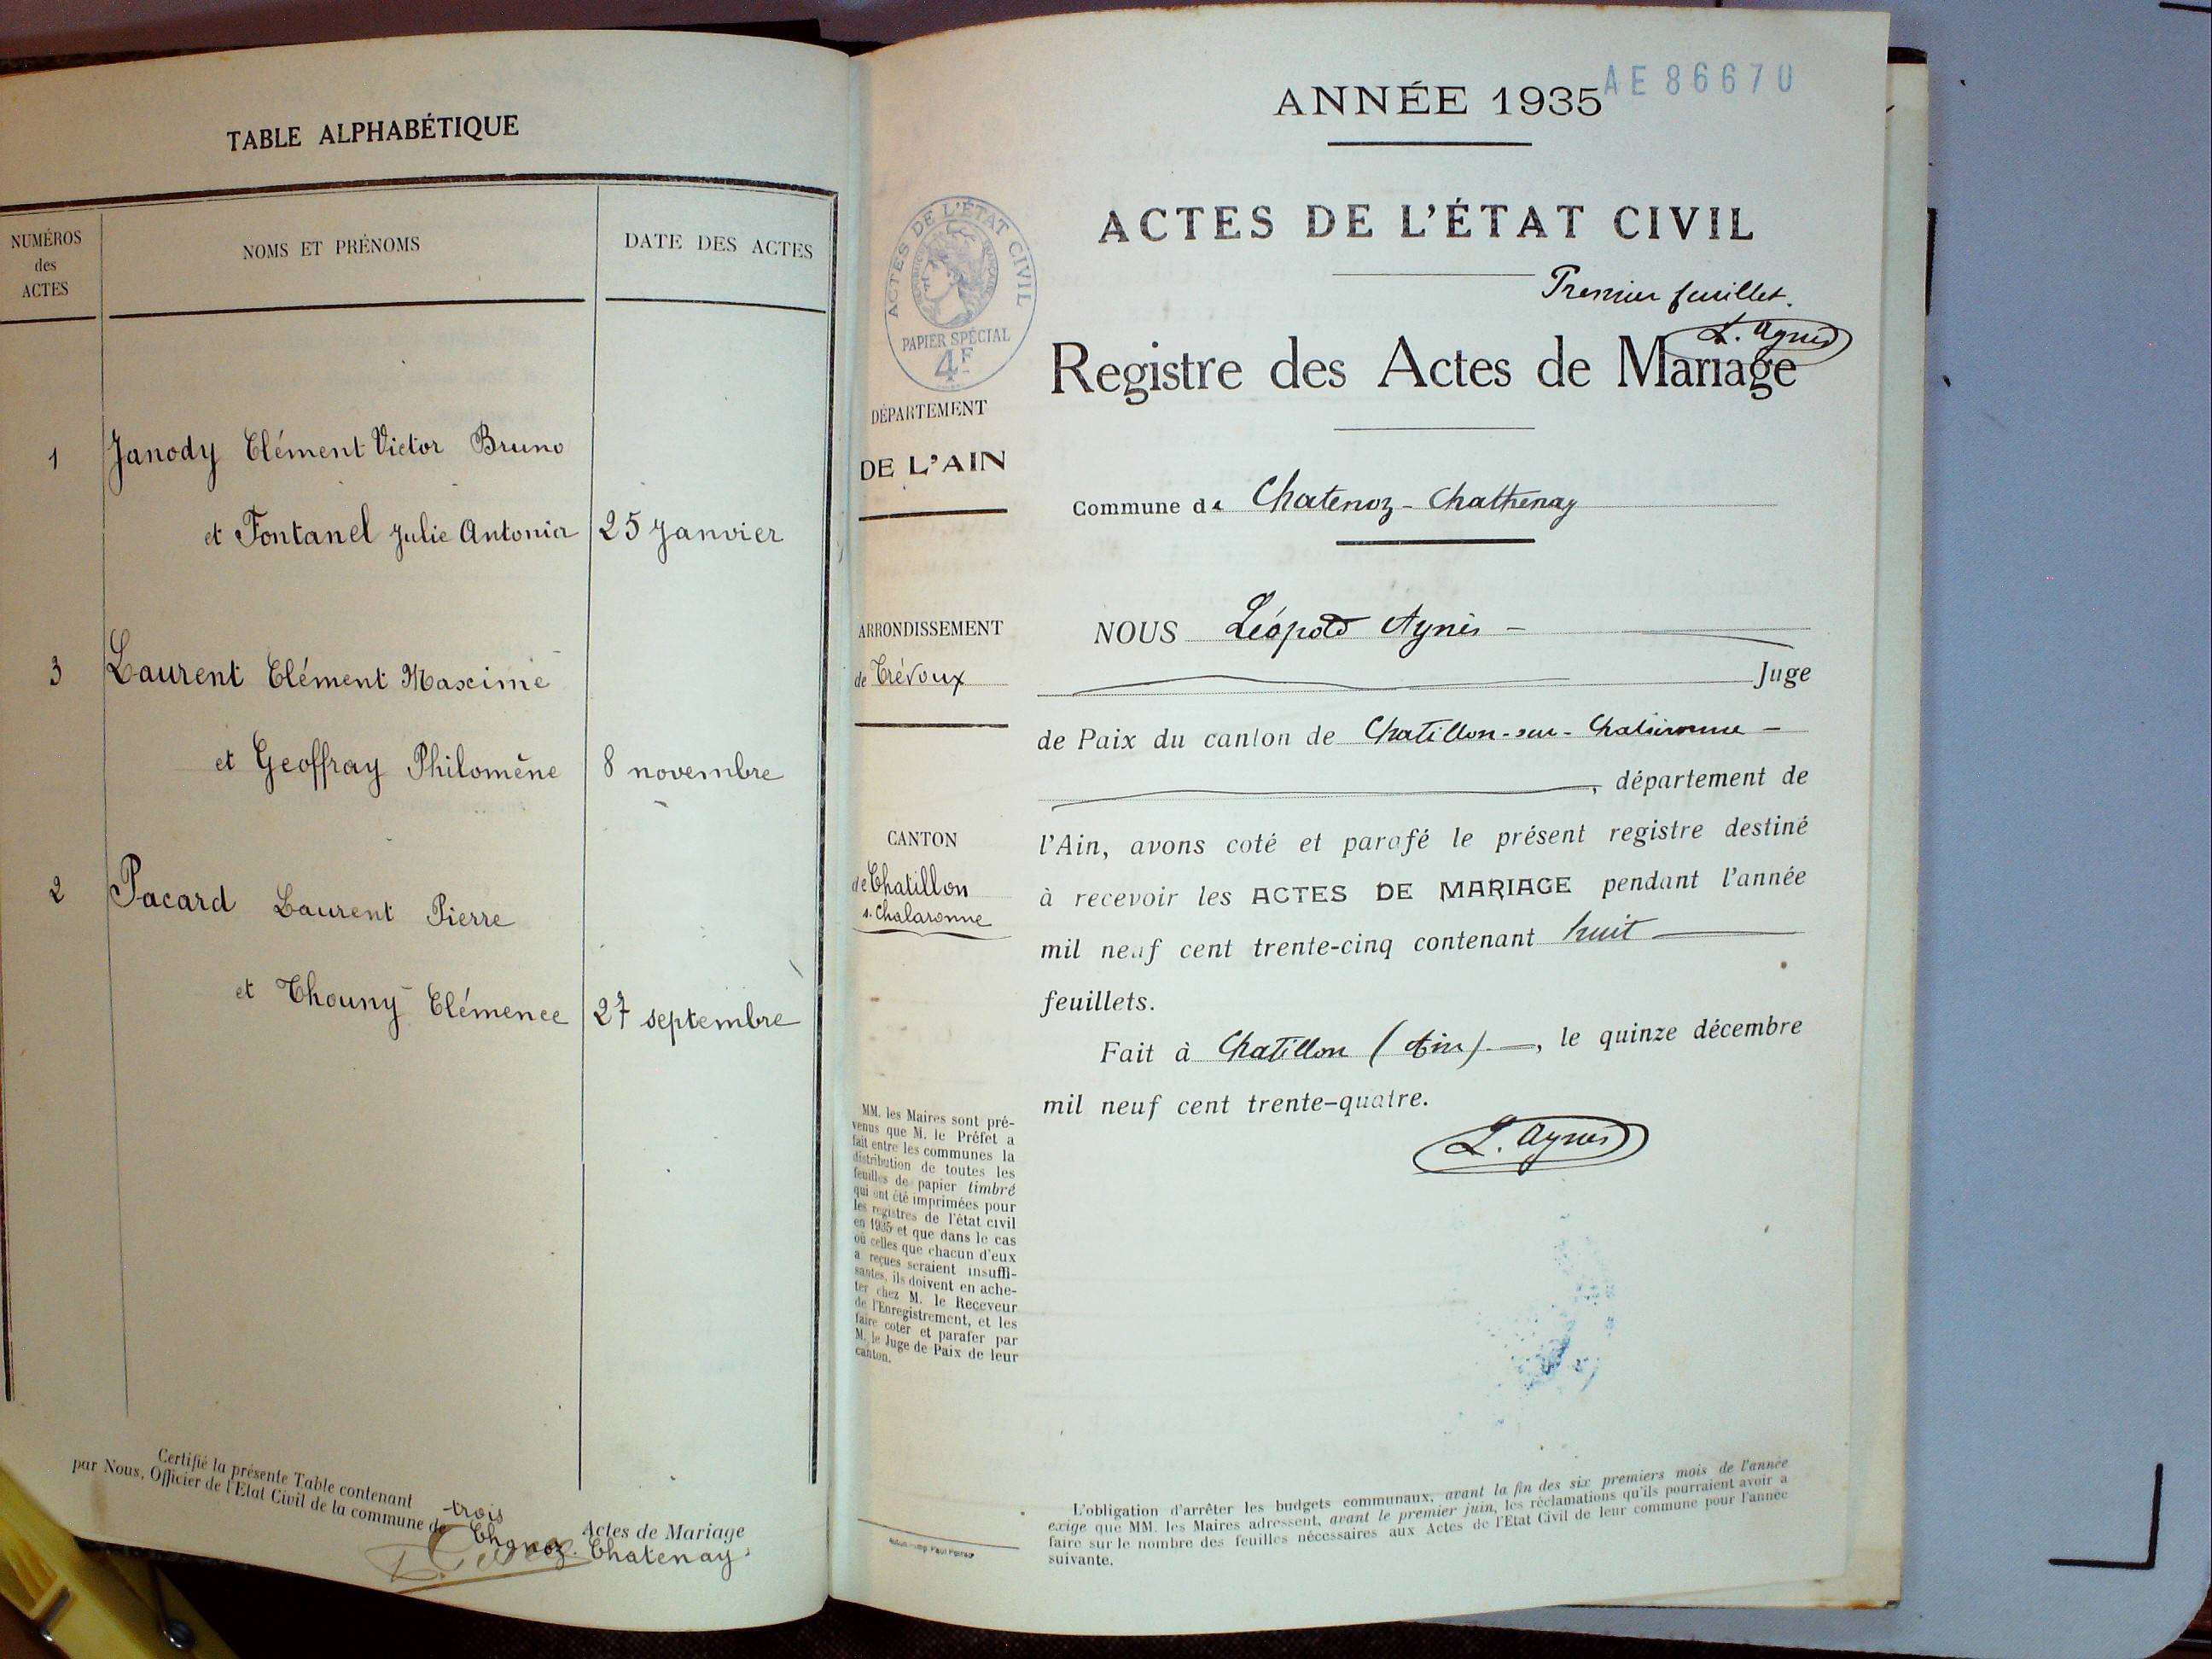 TABLE ALPHABÉTIQUE
NUMÉROS
des
ACTES
NOMS ET PRÉNOMS
DATE DES ACTES
1 Janody Clément Victor Bruno
et Fontanel Julie Antonia 25 Janvier
3 Laurent Clément Maxime
et Geoffray Philomène 8 novembre
2 Pacard Laurent Pierre
et Thouny Clémence 27 septembre
Certifié la présente Table contenant trois Actes de Mariage
par Nous, Officier de l'Etat Civil de la commune de Chanoz-Chatenay.
AE 86670
ANNÉE 1935
ACTES DE L'ÉTAT CIVIL
Premier feuillet.
L. Aynès
Registre des Actes de Mariage
ACTES DE L'ÉTAT CIVIL
PAPIER SPÉCIAL
4F
DÉPARTEMENT
DE L'AIN
ARRONDISSEMENT
de Trévoux
CANTON
de Chatillon
s. Chalaronne
MM. les Maires sont pré-
venus que M. le Préfet a
fait entre les communes la
distribution de toutes les
feuilles de papier timbré
qui ont été imprimées pour
les registres de l'état civil
en 1935 et que dans le cas
où celles que chacun d'eux
a reçues seraient insuffi-
santes, ils doivent en ache-
ter chez M. le Receveur
de l'Enregistrement, et les
faire coter et parafer par
M. le Juge de Paix de leur
canton.
Commune de Chatenoz-Chathenay
NOUS Léopold Aynès
Juge
de Paix du canton de Chatillon-sur-Chalaronne
, département de
l'Ain, avons coté et parafé le présent registre destiné
à recevoir les ACTES DE MARIAGE pendant l'année
mil neuf cent trente-cinq contenant huit
feuillets.
Fait à Chatillon (Ain), le quinze décembre
mil neuf cent trente-quatre.
L. Aynès
L'obligation d'arrêter les budgets communaux, avant la fin des six premiers mois de l'année
exige que MM. les Maires adressent, avant le premier juin, les réclamations qu'ils pourraient avoir à
faire sur le nombre des feuilles nécessaires aux Actes de l'Etat Civil de leur commune pour l'année
suivante.